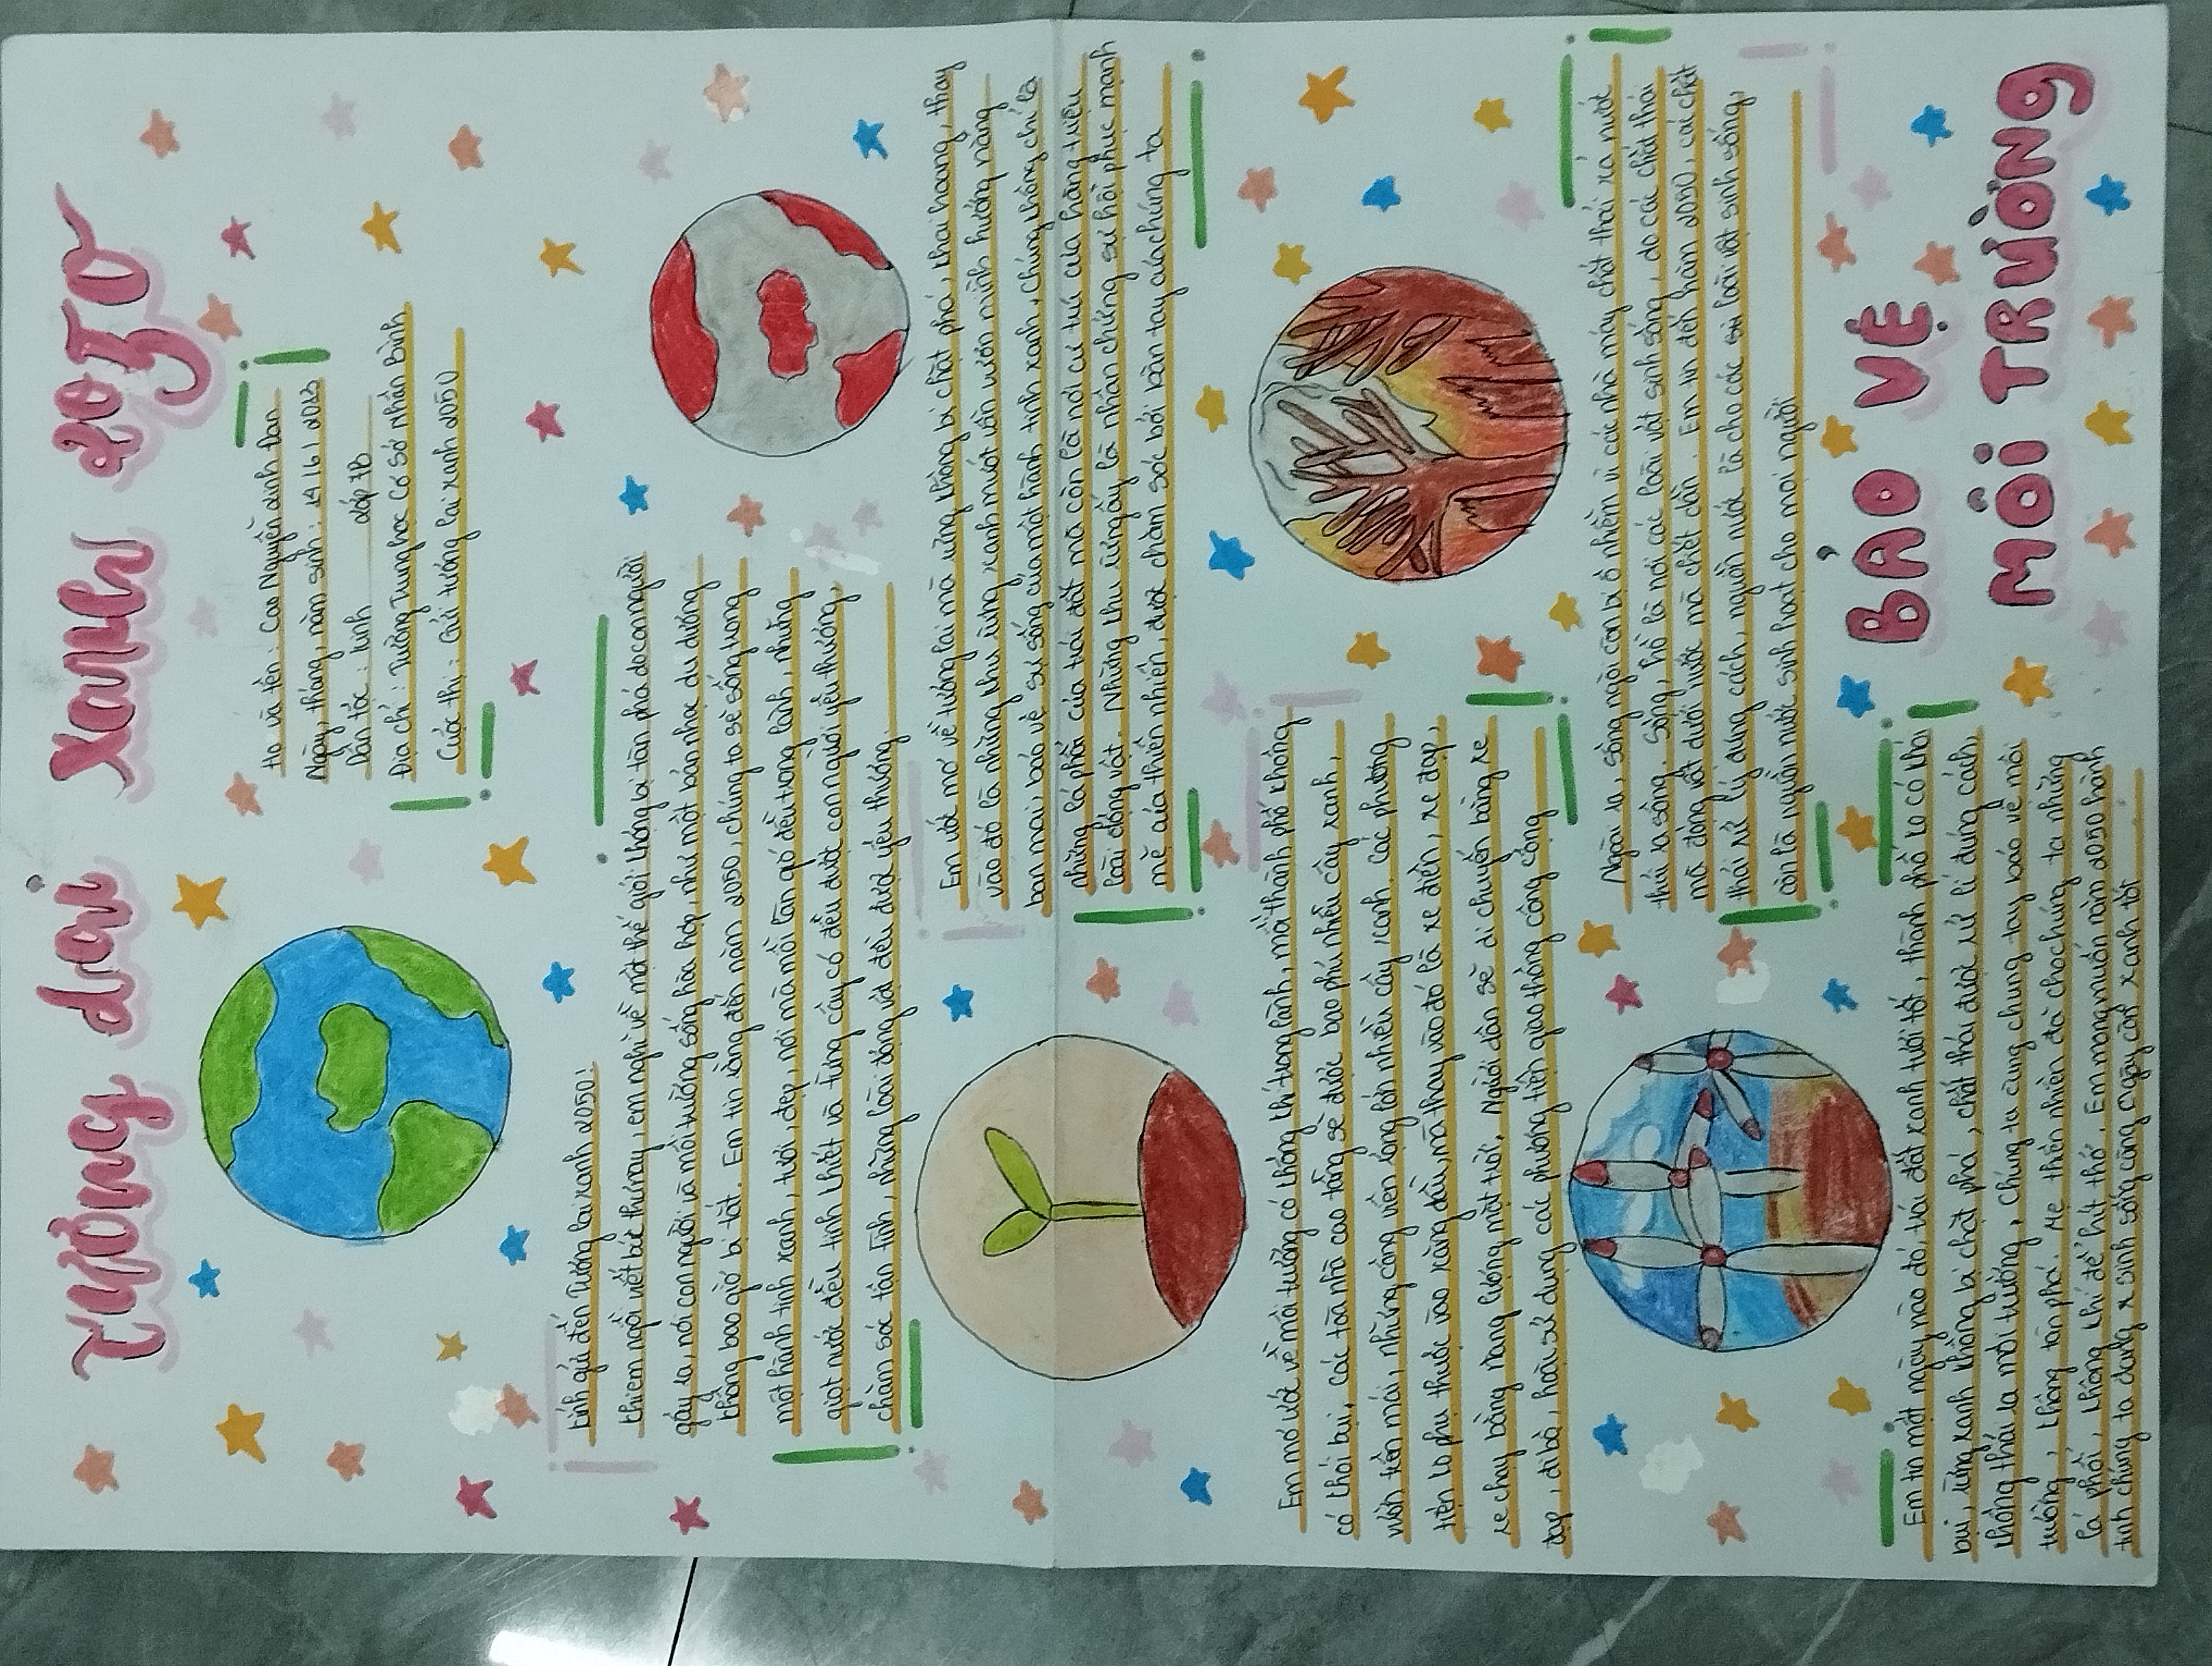 Tương lai xanh 2050
Họ và tên: Cao Nguyễn Linh Đan
Ngày, tháng, năm sinh: 14/6/2013
Dân tộc: kinh lớp 7B
Địa chỉ: Trường Trung học Cơ Sở Nhân Bình
Cuộc thi: Gửi tương lai xanh 2050
Kính gửi đến Tương lai xanh 2050!
Khi em ngồi viết bức thư này, em nghĩ về một thế giới không bị tàn phá do con người
gây ra, nơi con người và môi trường sống hòa hợp, như một bản nhạc du dương
không bao giờ bị tắt. Em tin rằng đến năm 2050, chúng ta sẽ sống trong
một hành tinh xanh, tươi, đẹp, nơi mà mỗi làn gió đều trong lành, những
giọt nước đều tinh khiết và từng cây cỏ đều được con người yêu thương,
chăm sóc tận tình, những loài động vật đều được yêu thương.
Em ước mơ về tương lai mà rừng không bị chặt phá, khai hoang, thay
vào đó là những khu rừng xanh mướt vẫn vươn mình hướng nắng
ban mai, bảo vệ sự sống của một hành tinh xanh, chúng không chỉ là
những lá phổi của trái đất mà còn là nơi cư trú của hàng triệu
loài động vật. Những khu rừng ấy là nhân chứng sự hồi phục mạnh
mẽ của thiên nhiên, được chăm sóc bởi bàn tay của chúng ta
Em mơ ước về môi trường có không khí trong lành, mỗi thành phố không
có khói bụi, các tòa nhà cao tầng sẽ được bao phủ nhiều cây xanh,
vườn trên mái, những công viên rộng lớn nhiều cây xanh. Các phương
tiện ko phụ thuộc vào xăng dầu, mà thay vào đó là xe điện, xe đạp,
xe chạy bằng năng lượng mặt trời. Người dân sẽ di chuyển bằng xe
đạp, đi bộ, hoặc sử dụng các phương tiện giao thông công cộng
Ngoài ra, sông ngòi còn bị ô nhiễm vì các nhà máy chất thải xả nước
thải ra sông. Sông, hồ là nơi các loài vật sinh sống, do các chất thải
mà động vật dưới nước mà chết dần. Em tin đến năm 2050, các chất
thải xử lý đúng cách, nguồn nước là cho các loài vật sinh sống,
còn là nguồn nước sinh hoạt cho mọi người
Em tin một ngày nào đó, trái đất xanh tươi tốt, thành phố ko có khói
bụi, rừng xanh không bị chặt phá, chất thải được xử lí đúng cách,
không thải ra môi trường, chúng ta cùng chung tay bảo vệ môi
trường, không tàn phá. Mẹ thiên nhiên đã cho chúng ta những
lá phổi, không khí để hít thở. Em mong muốn năm 2050 hành
tinh chúng ta đang sinh sống càng ngày càng xanh tốt
BẢO VỆ
MÔI TRƯỜNG